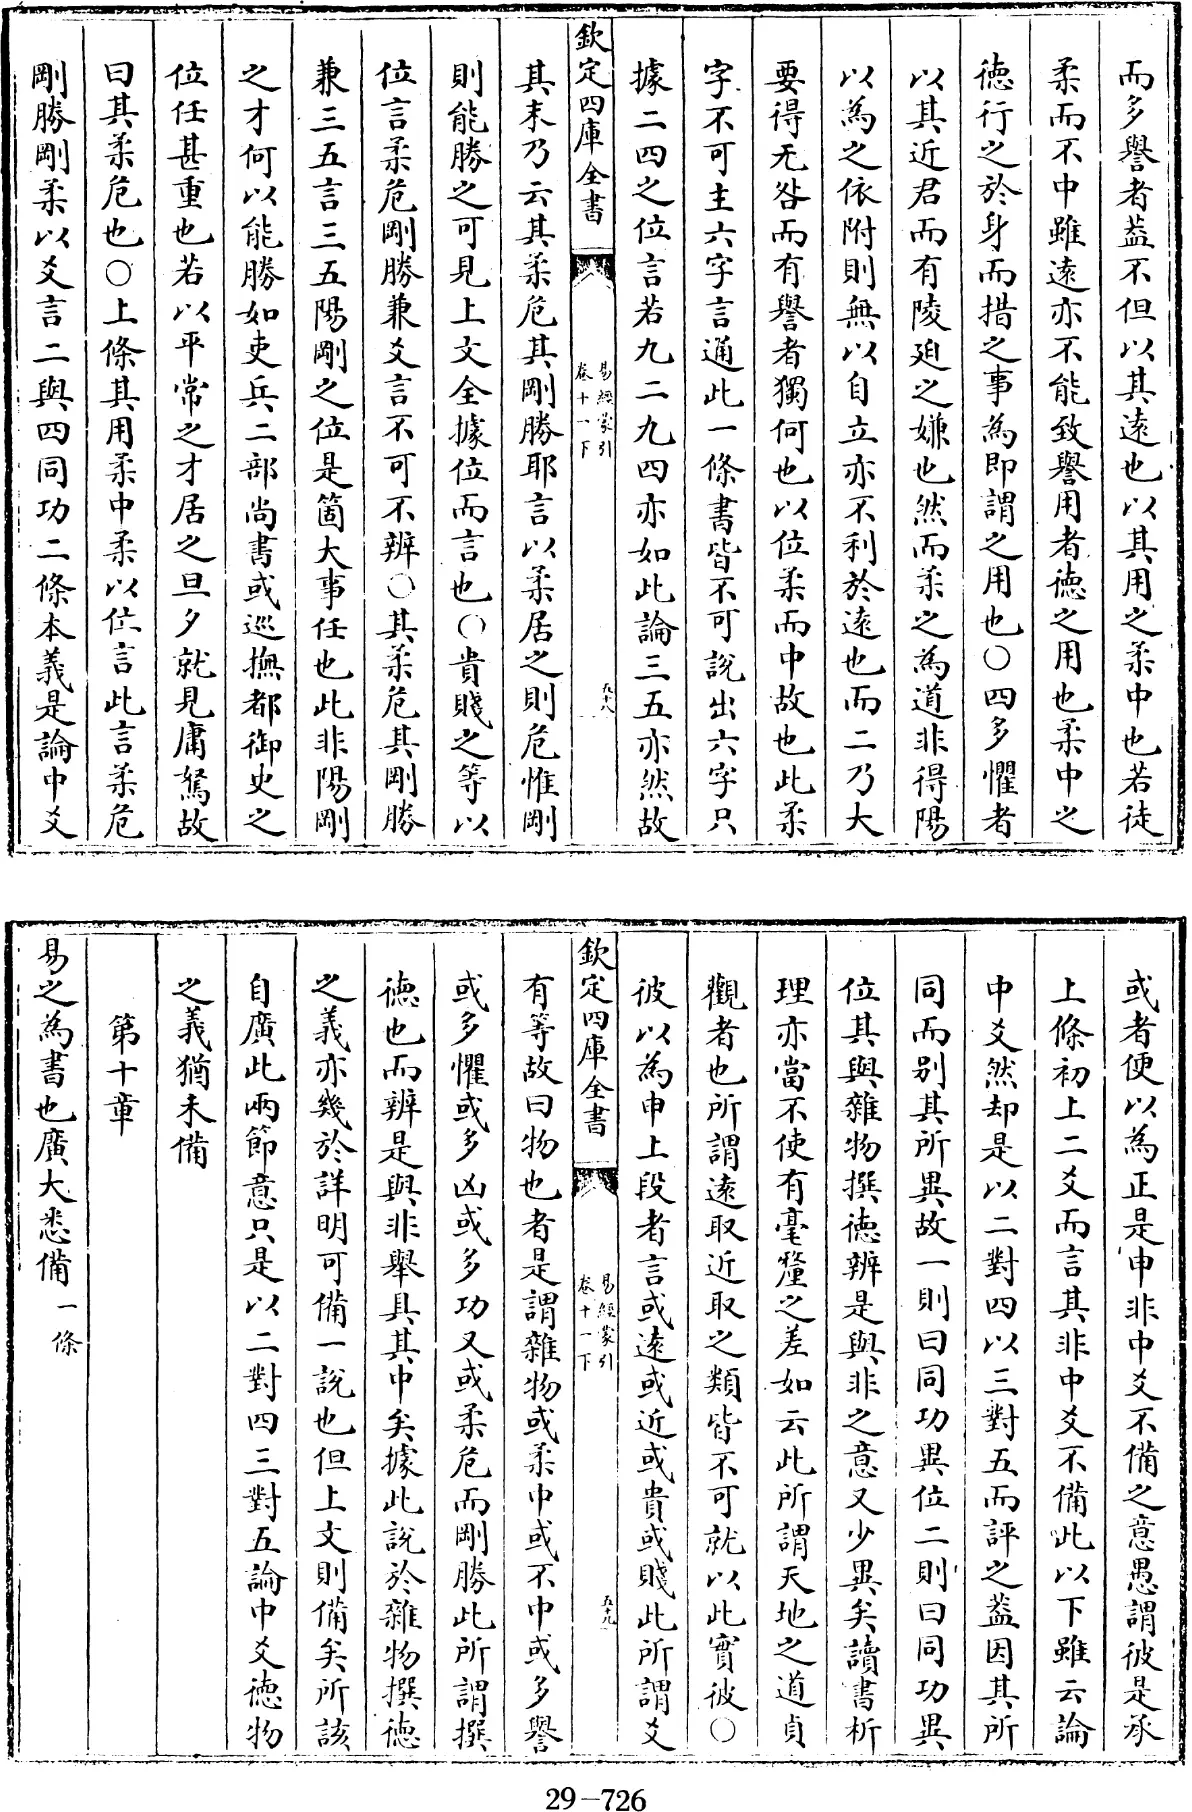 而多譽者葢不但以其遠也以其用之柔中也若徒
柔而不中雖遠亦不能致譽用者德之用也柔中之
德行之於身而措之事為即謂之用也○四多懼者
以其近君而有陵迫之嫌也然而柔之為道非得陽
以為之依附則無以自立亦不利於遠也而二乃大
要得无咎而有譽者獨何也以位柔而中故也此柔
字不可主六字言通此一條書皆不可說出六字只
據二四之位言若九二九四亦如此論三五亦然故
欽定四庫全書
易經蒙引
卷十一下
五十八
其末乃云其柔危其剛勝耶言以柔居之則危惟剛
則能勝之可見上文全據位而言也○貴賤之等以
位言柔危剛勝兼爻言不可不辨○其柔危其剛勝
兼三五言三五陽剛之位是箇大事任也此非陽剛
之才何以能勝如吏兵二部尚書或巡撫都御史之
位任甚重也若以平常之才居之旦夕就見庸駑故
曰其柔危也○上條其用柔中柔以位言此言柔危
剛勝剛柔以爻言二與四同功二條本義是論中爻
或者便以為正是申非中爻不備之意愚謂彼是承
上條初上二爻而言其非中爻不備此以下雖云論
中爻然却是以二對四以三對五而評之葢因其所
同而别其所異故一則曰同功異位二則曰同功異
位其與雜物撰德辨是與非之意又少異矣讀書析
理亦當不使有毫釐之差如云此所謂天地之道貞
觀者也所謂遠取近取之類皆不可就以此實彼○
彼以為申上段者言或遠或近或貴或賤此所謂爻
欽定四庫全書
易經蒙引
卷十一下
五十九
有等故曰物也者是謂雜物或柔中或不中或多譽
或多懼或多凶或多功又或柔危而剛勝此所謂撰
德也而辨是與非舉具其中矣據此說於雜物撰德
之義亦幾於詳明可備一說也但上文則備矣所該
自廣此兩節意只是以二對四三對五論中爻德物
之義猶未備
第十章
易之為書也廣大悉備一條
29-726